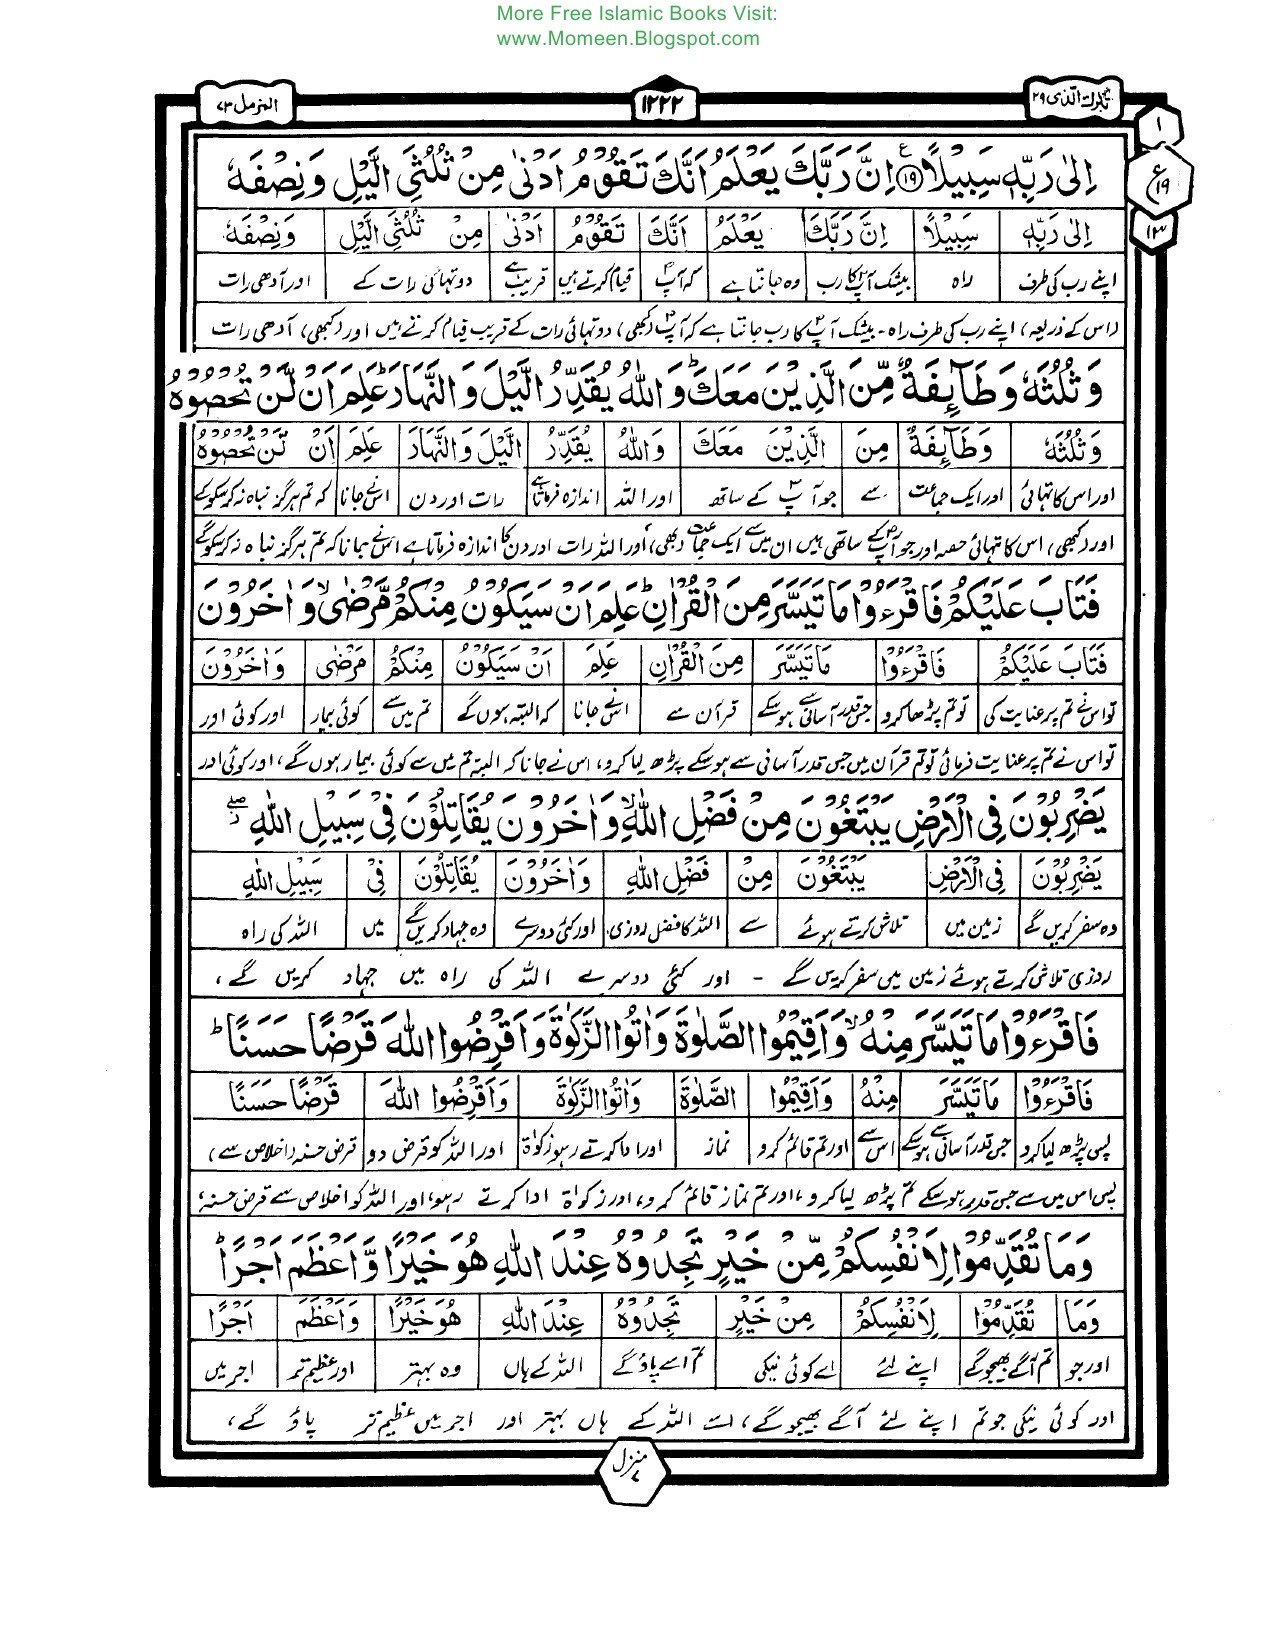 More Free Islamic Books Visit:
www.Momeen.Blogspot.com
تبٰرك الذی ۲۹
۱۲۲۲
المزمل ۷۳
۱
ع
۱۹
۱۳
اِلٰى رَبِّهٖ سَبِيْلًا ۱۹ ع اِنَّ رَبَّكَ يَعْلَمُ اَنَّكَ تَقُوْمُ اَدْنٰى مِنْ ثُلُثَىِ الَّيْلِ وَنِصْفَهٗ
اِلٰى رَبِّهٖ سَبِيْلًا اِنَّ رَبَّكَ يَعْلَمُ اَنَّكَ تَقُوْمُ اَدْنٰى مِنْ ثُلُثَىِ الَّيْلِ وَنِصْفَهٗ
اپنے رب کی طرف راہ بیشک آپؐ کا رب وہ جانتا ہے کہ آپؐ قیام کرتے ہیں قریب ہے دو تہائی رات کے اور آدھی رات
(اس کے ذریعہ) اپنے رب کی طرف راہ - بیشک آپؐ کا رب جانتا ہے کہ آپؐ (کبھی) دو تہائی رات کے قریب قیام کرتے ہیں اور (کبھی) آدھی رات
وَثُلُثَهٗ وَطَآئِفَةٌ مِّنَ الَّذِيْنَ مَعَكَ ؕ وَاللّٰهُ يُقَدِّرُ الَّيْلَ وَالنَّهَارَ ؕ عَلِمَ اَنْ لَّنْ تُحْصُوْهُ
وَثُلُثَهٗ وَطَآئِفَةٌ مِنَ الَّذِيْنَ مَعَكَ وَاللّٰهُ يُقَدِّرُ الَّيْلَ وَالنَّهَارَ عَلِمَ اَنْ لَّنْ تُحْصُوْهُ
اور اس کا تہائی اور ایک جماعت سے جو آپؐ کے ساتھ اور اللہ اندازہ فرماتا ہے رات اور دن اسنے جانا کہ تم ہرگز نباہ نہ کر سکو گے
اور (کبھی) اس کا تہائی حصہ اور جو آپؐ کے ساتھی ہیں ان میں سے ایک جماعت (بھی) اور اللہ رات اور دن کا اندازہ فرماتا ہے اس نے جانا کہ تم ہرگز نباہ نہ کر سکو گے
فَتَابَ عَلَيْكُمْ فَاقْرَءُوْا مَا تَيَسَّرَ مِنَ الْقُرْاٰنِ ؕ عَلِمَ اَنْ سَيَكُوْنُ مِنْكُمْ مَّرْضٰى ۙ وَاٰخَرُوْنَ
فَتَابَ عَلَيْكُمْ فَاقْرَءُوْا مَا تَيَسَّرَ مِنَ الْقُرْاٰنِ عَلِمَ اَنْ سَيَكُوْنُ مِنْكُمْ مَرْضٰى وَاٰخَرُوْنَ
تو اس نے تم پر عنایت کی تو تم پڑھا کرو جس قدر آسانی سے ہو سکے قرآن سے اسنے جانا کہ البتہ ہوں گے تم میں سے کوئی بیمار اور کوئی اور
تو اس نے تم پر عنایت فرمائی تو تم قرآن میں جس قدر آسانی سے ہو سکے پڑھ لیا کرو، اس نے جانا کہ البتہ تم میں سے کوئی بیمار ہوں گے، اور کوئی اور
يَضْرِبُوْنَ فِى الْاَرْضِ يَبْتَغُوْنَ مِنْ فَضْلِ اللّٰهِ ۙ وَاٰخَرُوْنَ يُقَاتِلُوْنَ فِىْ سَبِيْلِ اللّٰهِ ۖ ز
يَضْرِبُوْنَ فِى الْاَرْضِ يَبْتَغُوْنَ مِنْ فَضْلِ اللّٰهِ وَاٰخَرُوْنَ يُقَاتِلُوْنَ فِىْ سَبِيْلِ اللّٰهِ
وہ سفر کریں گے زمین میں تلاش کرتے ہوئے سے اللہ کا فضل (روزی) اور کئی دوسرے وہ جہاد کریں گے میں اللہ کی راہ
روزی تلاش کرتے ہوئے زمین میں سفر کریں گے - اور کئی دوسرے اللہ کی راہ میں جہاد کریں گے،
فَاقْرَءُوْا مَا تَيَسَّرَ مِنْهُ ۙ وَاَقِيْمُوا الصَّلٰوةَ وَاٰتُوا الزَّكٰوةَ وَاَقْرِضُوا اللّٰهَ قَرْضًا حَسَنًا ؕ
فَاقْرَءُوْا مَا تَيَسَّرَ مِنْهُ وَاَقِيْمُوا الصَّلٰوةَ وَاٰتُوا الزَّكٰوةَ وَاَقْرِضُوا اللّٰهَ قَرْضًا حَسَنًا
پس پڑھ لیا کرو جس قدر آسانی سے ہو سکے اس سے اور تم قائم کرو نماز اور ادا کرتے رہو زکوٰۃ اور اللہ کو قرض دو قرض حسنہ (اخلاص سے)
پس اس میں سے جس قدر ہو سکے تم پڑھ لیا کرو، اور تم نماز قائم کرو، اور زکوٰۃ ادا کرتے رہو، اور اللہ کو اخلاص سے قرض حسنہ،
وَمَا تُقَدِّمُوْا لِاَنْفُسِكُمْ مِّنْ خَيْرٍ تَجِدُوْهُ عِنْدَ اللّٰهِ هُوَ خَيْرًا وَّاَعْظَمَ اَجْرًا ؕ
وَمَا تُقَدِّمُوْا لِاَنْفُسِكُمْ مِنْ خَيْرٍ تَجِدُوْهُ عِنْدَ اللّٰهِ هُوَ خَيْرًا وَاَعْظَمَ اَجْرًا
اور جو تم آگے بھیجو گے اپنے لئے اے کوئی نیکی تم اسے پاؤ گے اللہ کے ہاں وہ بہتر اور عظیم تر اجر میں
اور کوئی نیکی جو تم اپنے لئے آگے بھیجو گے، اسے اللہ کے ہاں بہتر اور اجر میں عظیم تر پاؤ گے،
منزل ۷